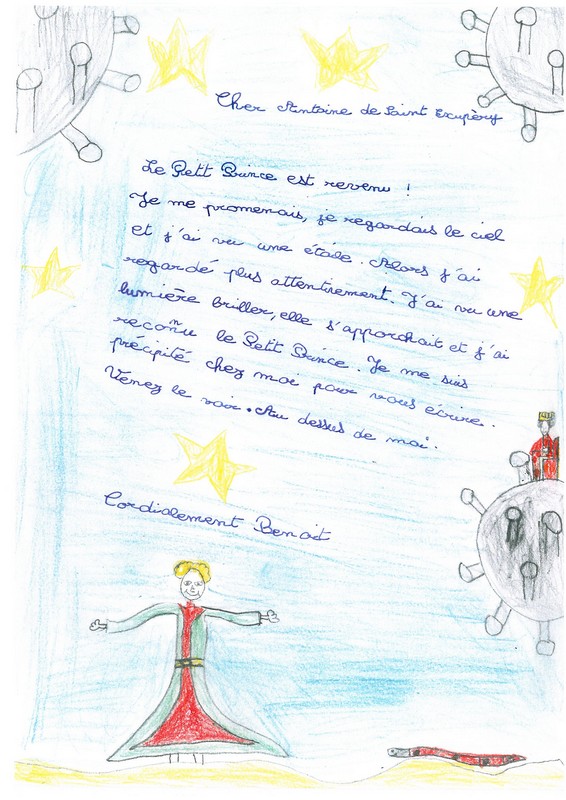 Cher Antoine de Saint Exupèry
Le Petit Prince est revenu !
Je me promenais, je regardais le ciel
et j'ai vu une étoile. Alors j'ai
regardé plus attentivement. J'ai vu une
lumière briller, elle s'approchait et j'ai
reconnu le Petit Prince. Je me suis
précipité chez moi pour vous écrire.
Venez le voir. Au dessus de moi.
Cordialement Benoit